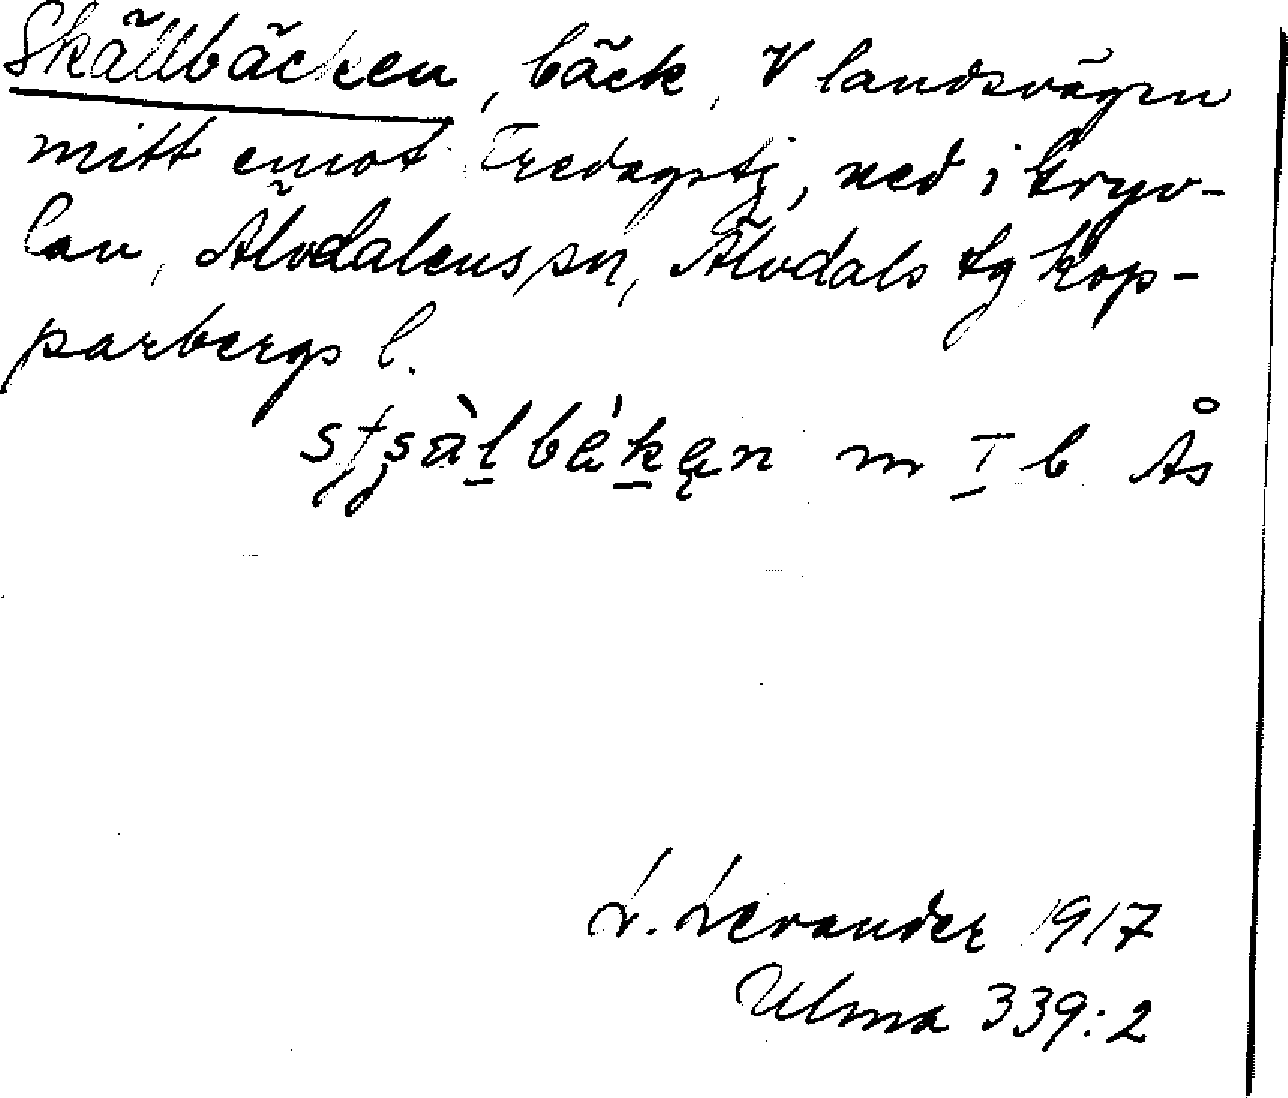 Skällbäcken, bäck, V landsvägen
mitt emot Fredagstj, ned i tryv-
lan, Älvdalens sn, Älvdals tg Kop-
parbergs l.
m I b Ås
L. Levander 1917
Ulma 339:2